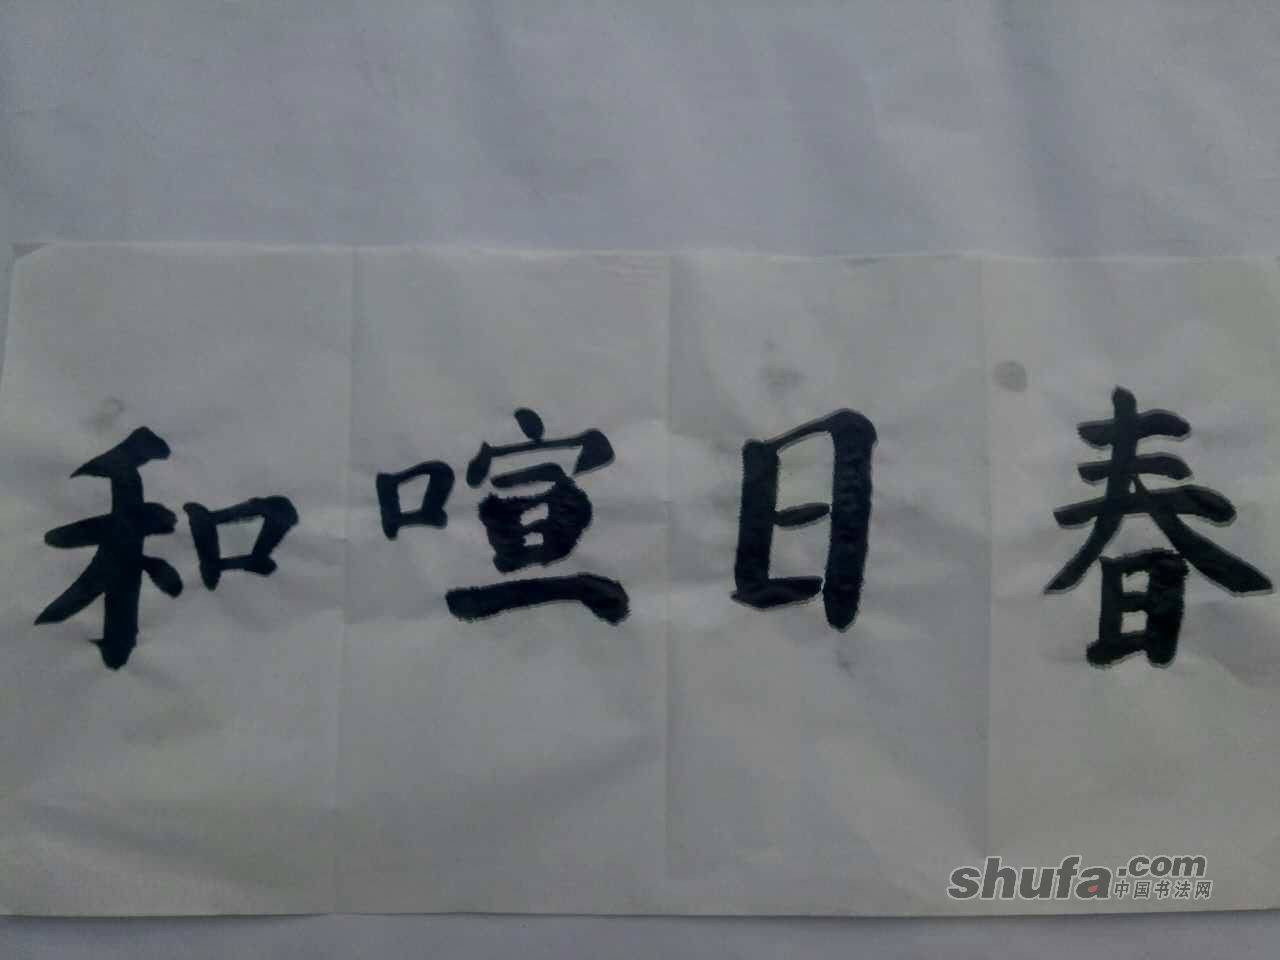 春日喧和
shufa.com
中国书法网